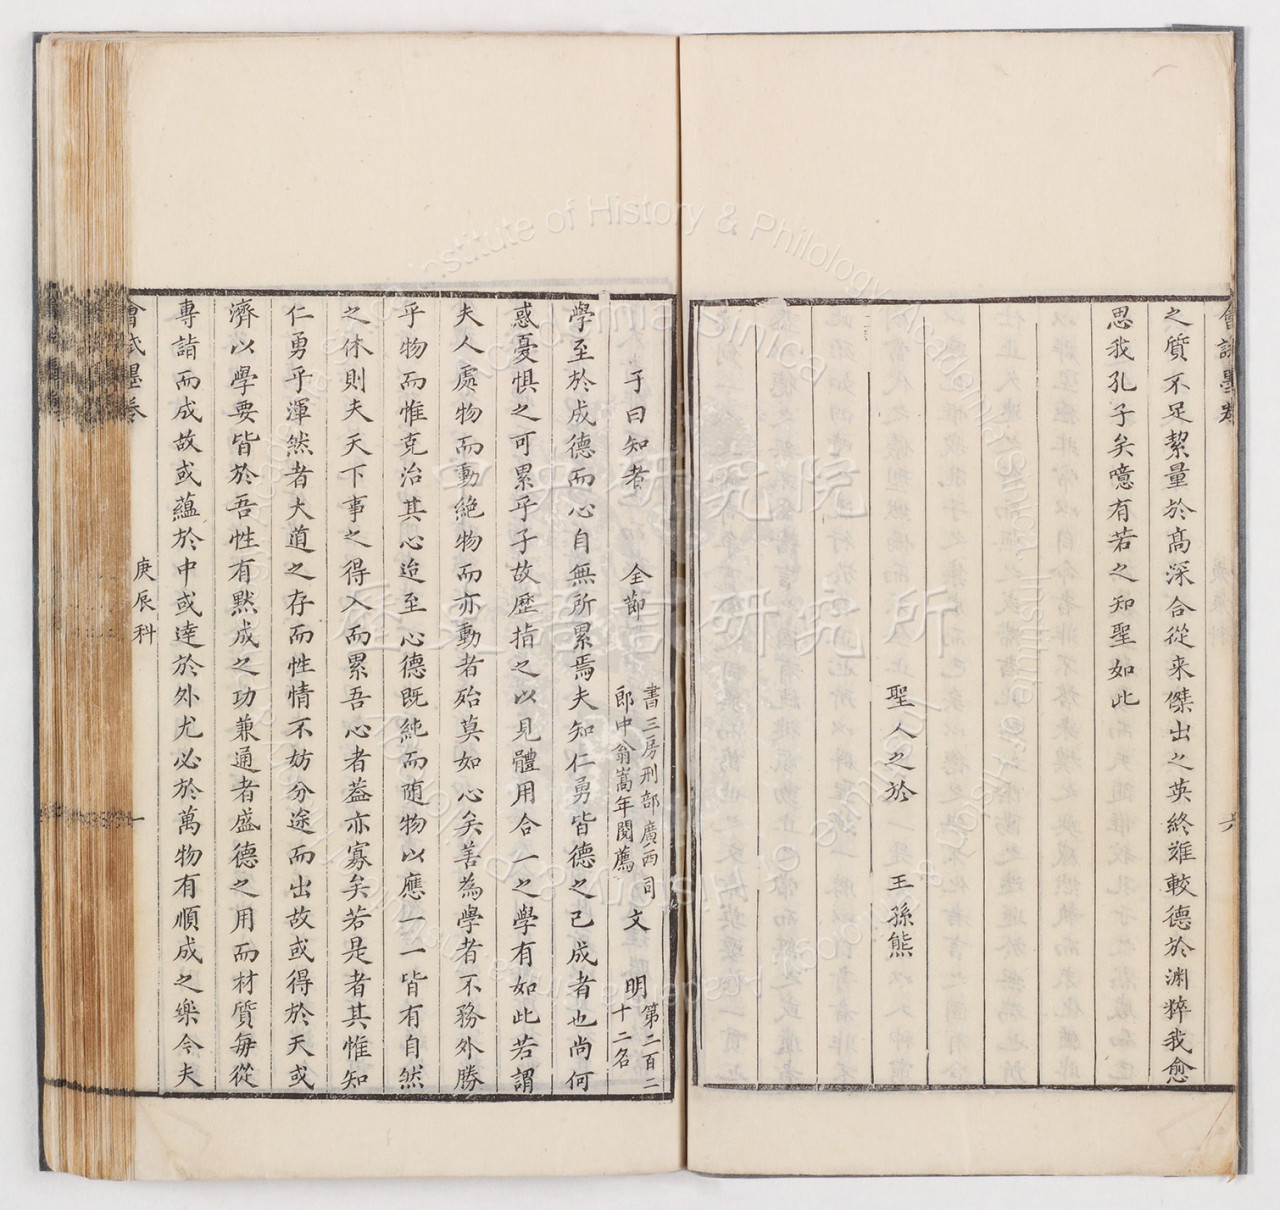 會試墨卷
六
之質不足絜量於高深合從來傑出之英終難較德於淵粹我愈
思我孔子矣噫有若之知聖如此
聖人之於 王孫熊
子曰知者 全節 書三房刑部廣西司郎中翁嵩年閱薦 文明 第二百二十二名
學至於成德而心自無所累焉夫知仁勇皆德之已成者也尚何
惑憂懼之可累乎子故歷指之以見體用合一之學有如此若謂
夫人處物而動絶物而亦動者殆莫如心矣善為學者不務外勝
乎物而惟克治其心迨至心德既純而随物以應一一皆有自然
之休則夫天下事之得入而累吾心者葢亦寡矣若是者其惟知
仁勇乎渾然者大道之存而性情不妨分途而出故或得於天或
濟以學要皆於吾性有黙成之功兼通者盛德之用而材質每從
專詣而成故或蘊於中或達於外尤必於萬物有順成之樂今夫
會試墨卷
庚辰科
一
中央研究院
歷史語言研究所
Institute of History & Philology, Academia Sinica